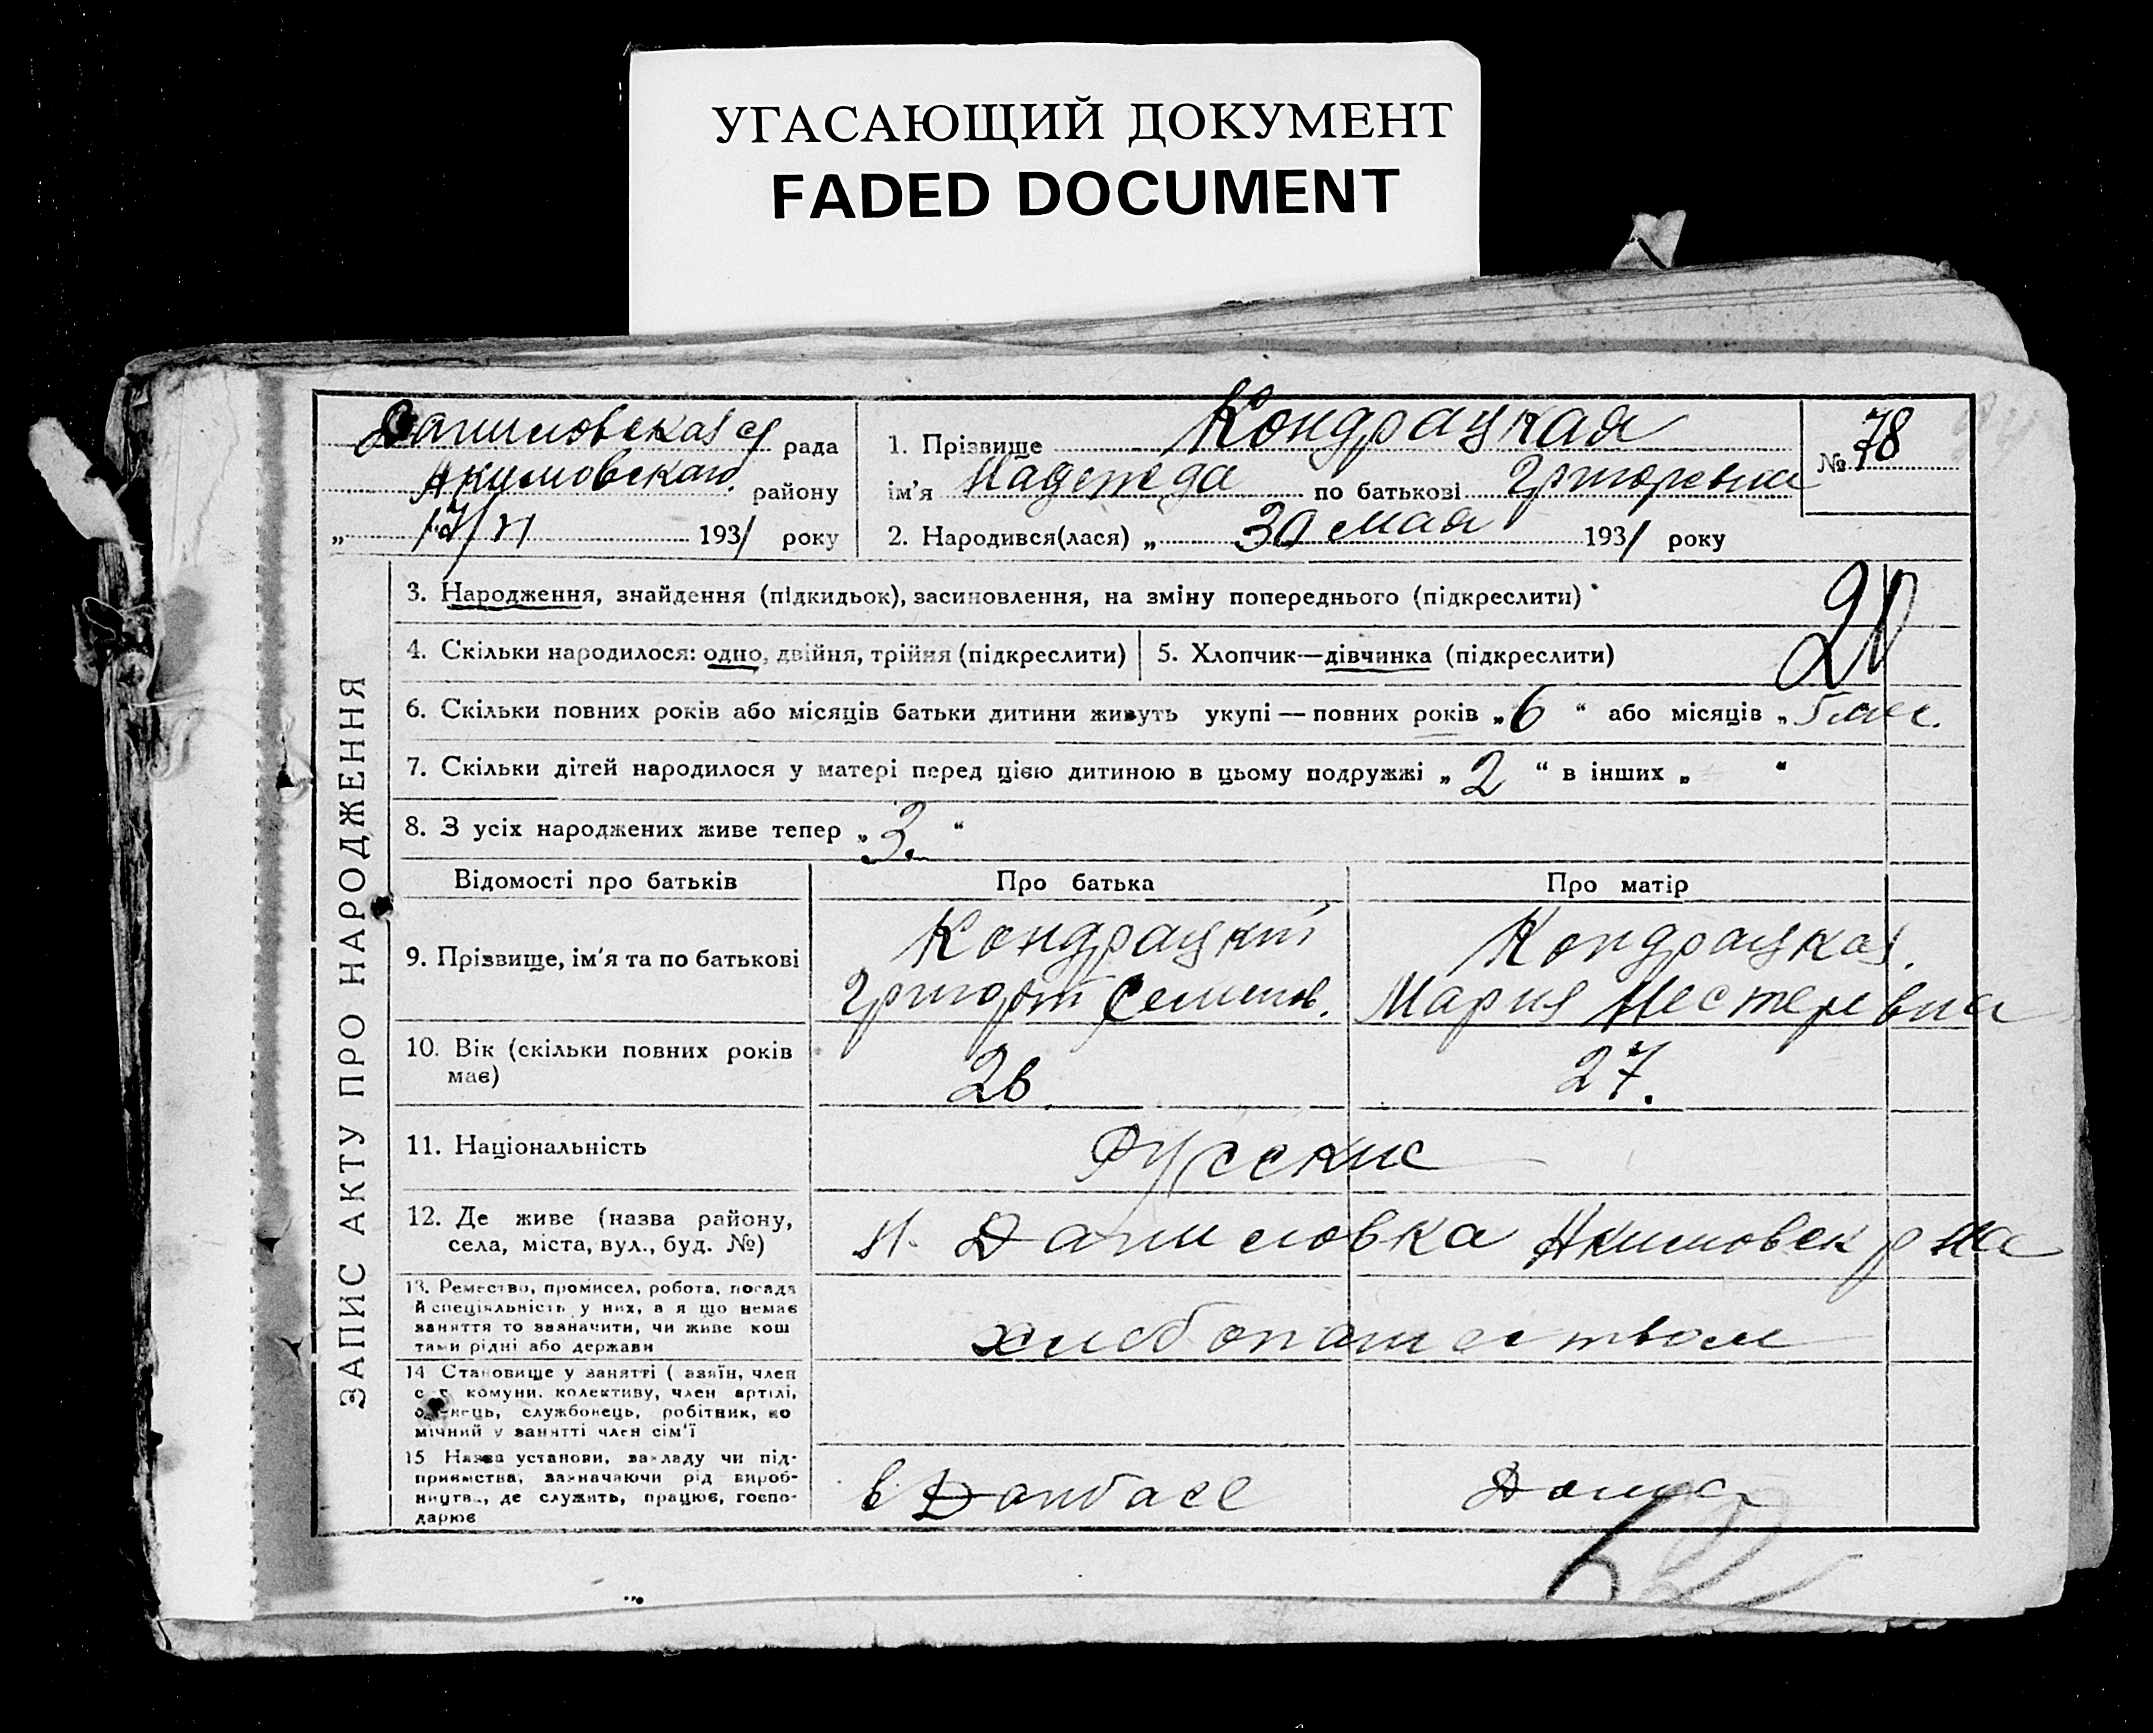 УГАСАЮЩИЙ ДОКУМЕНТ
FADED DOCUMENT
ЗАПИС АКТУ ПРО НАРОДЖЕННЯ
Даниловская с/ рада
Акимовского району
„ 17/VI 1931 року
1. Прізвище Кондрацкая
ім'я Надежда по батькові Григорьевна
2. Народився(лася) „ 30 мая 1931 року
№ 78
3. Народження, знайдення (підкидьок), засиновлення, на зміну попереднього (підкреслити)
4. Скільки народилося: одно, двійня, трійня (підкреслити)
5. Хлопчик—дівчинка (підкреслити)
6. Скільки повних років або місяців батьки дитини живуть укупі — повних років „ 6 “ або місяців „
7. Скільки дітей народилося у матері перед цією дитиною в цьому подружжі „ 2 “ в інших „ “
8. З усіх народжених живе тепер „ 3. “
Відомості про батьків
Про батька
Про матір
9. Прізвище, ім'я та по батькові
Кондрацкий
Григорий Семенов.
Кондрацкая.
Мария Нестеревна
10. Вік (скільки повних років
має)
26
27.
11. Національність
Русские
12. Де живе (назва району,
села, міста, вул., буд. №)
Н. Даниловка Акимовск р на
13. Ремество, промисел, робота, посада
й спеціяльність у них, а я що немає
заняття то зазначити, чи живе кош
тами рідні або держави
хлебопашеством
14 Становище у занятті ( азяїн, член
с г комуни. колективу, член артілі,
службонець, робітник, по
мічний у занятті член сім'ї
15 Назва установи, закладу чи під-
приємства, зазначаючи рід вироб-
ництв., де служить, працює, госпо-
дарює
в Донбасе
Дома